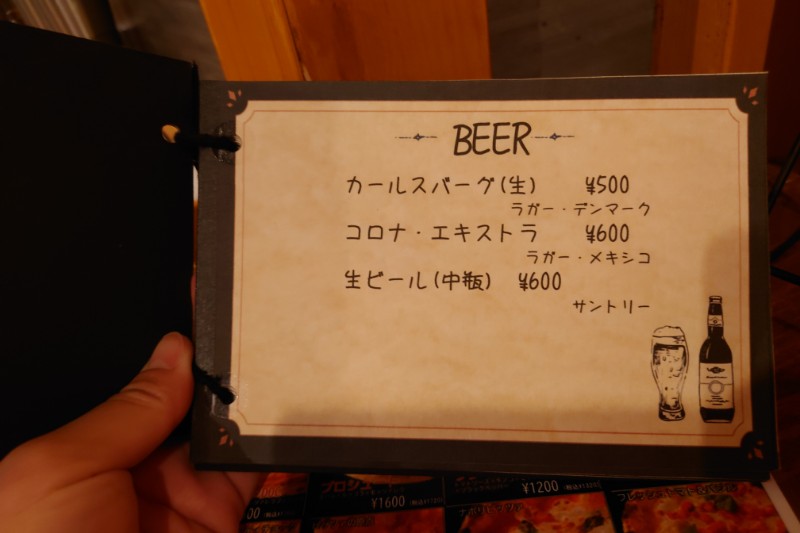 BEER
カールスバーグ(生) ¥500
ラガー・デンマーク
コロナ・エキストラ ¥600
ラガー・メキシコ
生ビール(中瓶) ¥600
サントリー
¥1600
¥1200